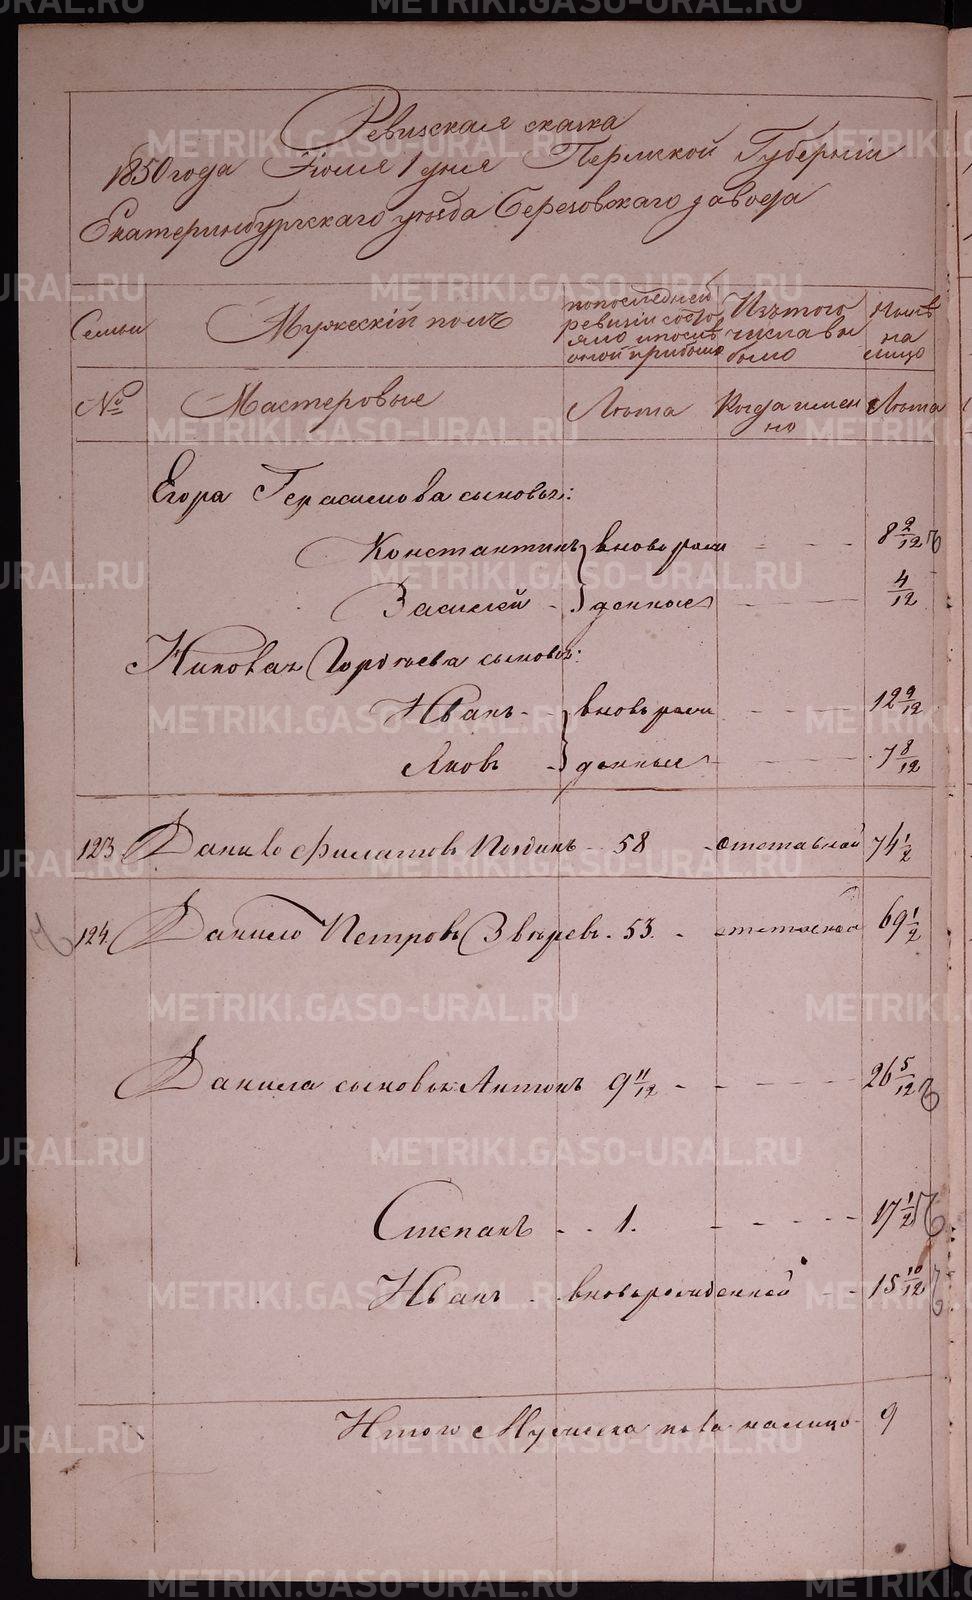 Ревизская сказка
1850 года Іюля 1 дня Пермской Губерніи
Екатеринбургскаго уѣзда Березовскаго завода
Семьи
Мужескій полъ
по последней ревизіи состояло и послѣ оной прибыло
Изъ того числа выбыло
Нынѣ на лицо
№
Мастеровые
Лѣта
Когда именно
Лѣта
Егора Герасимова сыновья:
Константинъ вновь рож 8 9/12
Василей - денные 4/12
сыновья:
Иванъ - вновь рож 12 9/12
Яковъ - денные 7 8/12
123 Данило Филатовъ 58 отставной 74 1/2
124. Данило Петровъ Звѣревъ - 53. - отставной 69 1/2
Данила сыновья Антонъ 9 11/12 26 5/12
Степанъ 1. 17 1/2
Иванъ вновьрожденной 15 10/12
Итого Мужеска пола налицо 9
METRIKI.GASO-URAL.RU